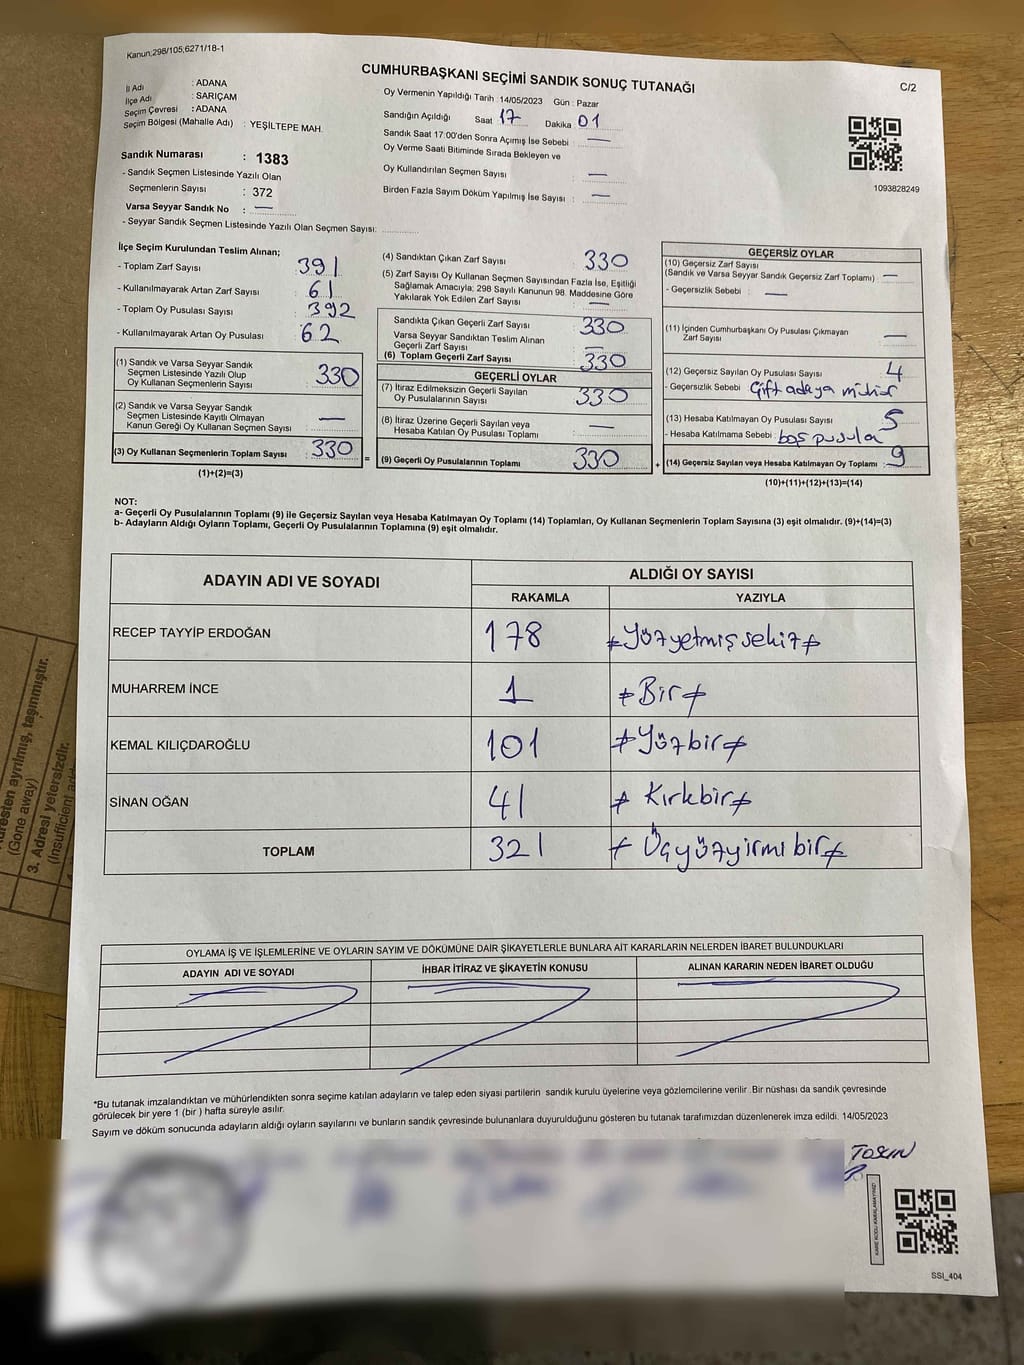 Kanun;298/105;6271/18-1
CUMHURBAŞKANI SEÇİMİ SANDIK SONUÇ TUTANAĞI
C/2
İl Adı : ADANA
İlçe Adı : SARIÇAM
Seçim Çevresi : ADANA
Seçim Bölgesi (Mahalle Adı) : YEŞİLTEPE MAH.
Sandık Numarası : 1383
- Sandık Seçmen Listesinde Yazılı Olan
Seçmenlerin Sayısı : 372
Varsa Seyyar Sandık No : —
- Seyyar Sandık Seçmen Listesinde Yazılı Olan Seçmen Sayısı:
Oy Vermenin Yapıldığı Tarih : 14/05/2023 Gün : Pazar
Sandığın Açıldığı Saat 17 Dakika 01
Sandık Saat 17:00'den Sonra Açımış İse Sebebi : —
Oy Verme Saati Bitiminde Sırada Bekleyen ve
Oy Kullandırılan Seçmen Sayısı : —
Birden Fazla Sayım Döküm Yapılmış İse Sayısı : —
1093828249
İlçe Seçim Kurulundan Teslim Alınan;
- Toplam Zarf Sayısı 391
- Kullanılmayarak Artan Zarf Sayısı 61
- Toplam Oy Pusulası Sayısı 392
- Kullanılmayarak Artan Oy Pusulası 62
(1) Sandık ve Varsa Seyyar Sandık
Seçmen Listesinde Yazılı Olup
Oy Kullanan Seçmenlerin Sayısı 330
(2) Sandık ve Varsa Seyyar Sandık
Seçmen Listesinde Kayıtlı Olmayan
Kanun Gereği Oy Kullanan Seçmen Sayısı —
(3) Oy Kullanan Seçmenlerin Toplam Sayısı : 330
(1)+(2)=(3)
=
(4) Sandıktan Çıkan Zarf Sayısı 330
(5) Zarf Sayısı Oy Kullanan Seçmen Sayısından Fazla İse, Eşitliği
Sağlamak Amacıyla; 298 Sayılı Kanunun 98. Maddesine Göre
Yakılarak Yok Edilen Zarf Sayısı —
Sandıkta Çıkan Geçerli Zarf Sayısı 330
Varsa Seyyar Sandıktan Teslim Alınan
Geçerli Zarf Sayısı —
(6) Toplam Geçerli Zarf Sayısı 330
GEÇERLİ OYLAR
(7) İtiraz Edilmeksizin Geçerli Sayılan
Oy Pusulalarının Sayısı 330
(8) İtiraz Üzerine Geçerli Sayılan veya
Hesaba Katılan Oy Pusulası Toplamı —
(9) Geçerli Oy Pusulalarının Toplamı 330
+
GEÇERSİZ OYLAR
(10) Geçersiz Zarf Sayısı
(Sandık ve Varsa Seyyar Sandık Geçersiz Zarf Toplamı) —
- Geçersizlik Sebebi : —
(11) İçinden Cumhurbaşkanı Oy Pusulası Çıkmayan
Zarf Sayısı —
(12) Geçersiz Sayılan Oy Pusulası Sayısı 4
- Geçersizlik Sebebi Çift adaya mühür
(13) Hesaba Katılmayan Oy Pusulası Sayısı 5
- Hesaba Katılmama Sebebi : boş pusula
(14) Geçersiz Sayılan veya Hesaba Katılmayan Oy Toplamı : 9
(10)+(11)+(12)+(13)=(14)
NOT:
a- Geçerli Oy Pusulalarının Toplamı (9) ile Geçersiz Sayılan veya Hesaba Katılmayan Oy Toplamı (14) Toplamları, Oy Kullanan Seçmenlerin Toplam Sayısına (3) eşit olmalıdır. (9)+(14)=(3)
b- Adayların Aldığı Oyların Toplamı, Geçerli Oy Pusulalarının Toplamına (9) eşit olmalıdır.
ADAYIN ADI VE SOYADI
ALDIĞI OY SAYISI
RAKAMLA YAZIYLA
RECEP TAYYİP ERDOĞAN 178 Yüzyetmişsekiz
MUHARREM İNCE 1 Bir
KEMAL KILIÇDAROĞLU 101 Yüzbir
SİNAN OĞAN 41 Kırkbir
TOPLAM 321 Üçyüzyirmibir
OYLAMA İŞ VE İŞLEMLERİNE VE OYLARIN SAYIM VE DÖKÜMÜNE DAİR ŞİKAYETLERLE BUNLARA AİT KARARLARIN NELERDEN İBARET BULUNDUKLARI
ADAYIN ADI VE SOYADI
İHBAR İTİRAZ VE ŞİKAYETİN KONUSU
ALINAN KARARIN NEDEN İBARET OLDUĞU
*Bu tutanak imzalandıktan ve mühürlendikten sonra seçime katılan adayların ve talep eden siyasi partilerin sandık kurulu üyelerine veya gözlemcilerine verilir .Bir nüshası da sandık çevresinde
görülecek bir yere 1 (bir ) hafta süreyle asılır.
Sayım ve döküm sonucunda adayların aldığı oyların sayılarını ve bunların sandık çevresinde bulunanlara duyurulduğunu gösteren bu tutanak tarafımızdan düzenlenerek imza edildi. 14/05/2023
TOSUN
KARE KODU KARALAMAYINIZ!
SSI_404
adresten ayrılmış, taşınmıştır.
(Gone away)
3. Adresi yetersizdir.
(Insufficient